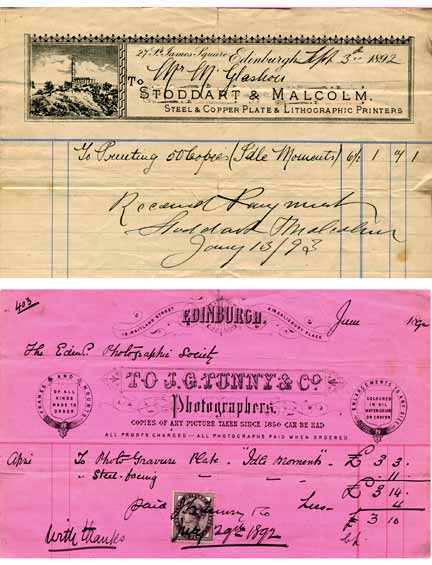 27 St. James Square Edinburgh Sept 3rd 1892
Mr McGlashon
To
STODDART & MALCOLM.
STEEL & COPPER PLATE & LITHOGRAPHIC PRINTERS
To Printing 50 Copies (Idle Moments) 6/- 1 1
Received Payment
Stoddart & Malcolm
Jany 13/93
403
EDINBURGH.
MAITLAND STREET
PLACE
June 1892
The Edinr. Photographic Society
TO J. G. TUNNY & Co
Photographers.
FRAMES AND MOUNTS
OF ALL KINDS MADE TO ORDER
ENLARGEMENTS
COLOURED IN OIL WATER-COLOUR OR CRAYON
COPIES OF ANY PICTURE TAKEN SINCE 1850 CAN BE HAD
ALL PROOFS CHARGED—ALL PHOTOGRAPHS PAID WHEN ORDERED.
April To Photo Gravure Plate "Idle Moments" £ 3 3 .
" Steel-facing " " 11 .
£ 3 14 .
paid Less 4
£ 3 10
J. G. Tunny & Co
29th 1892
With thanks